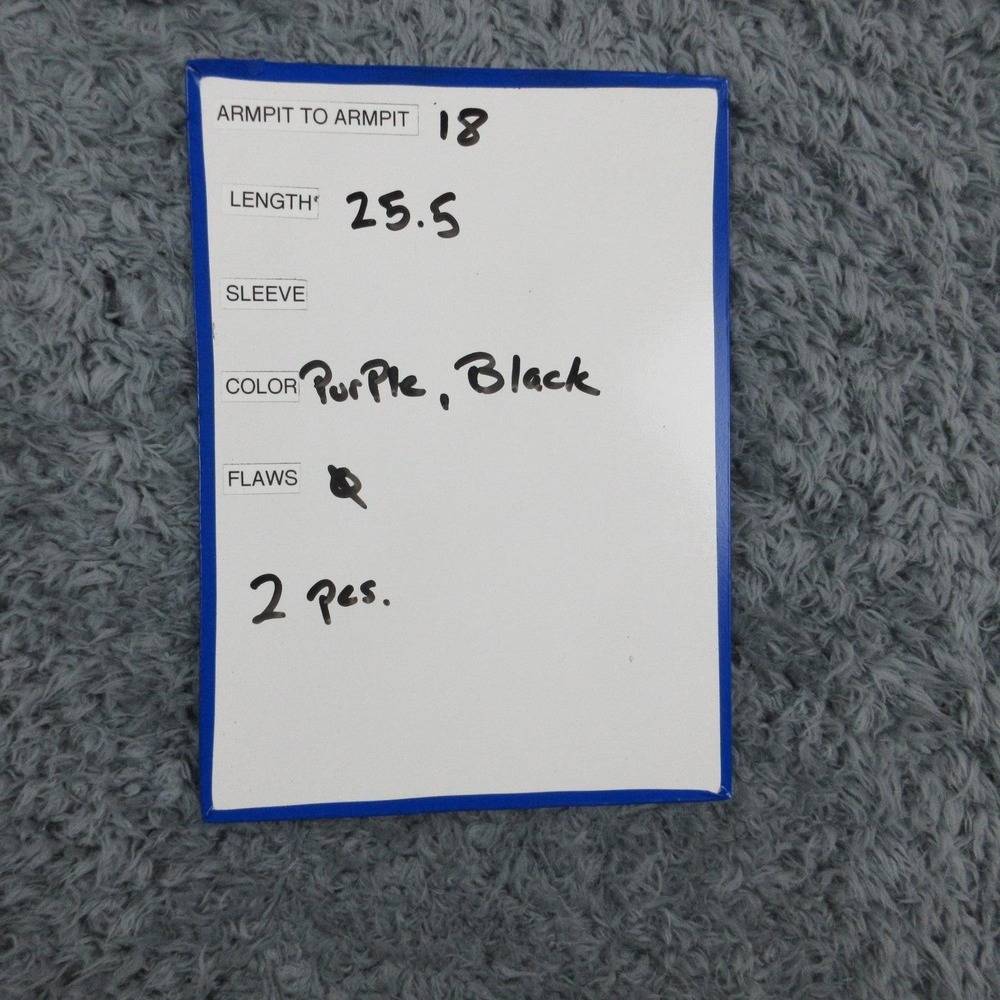 ARMPIT TO ARMPIT 18
LENGTH* 25.5
SLEEVE
COLOR Purple, Black
FLAWS Ø
2 pcs.